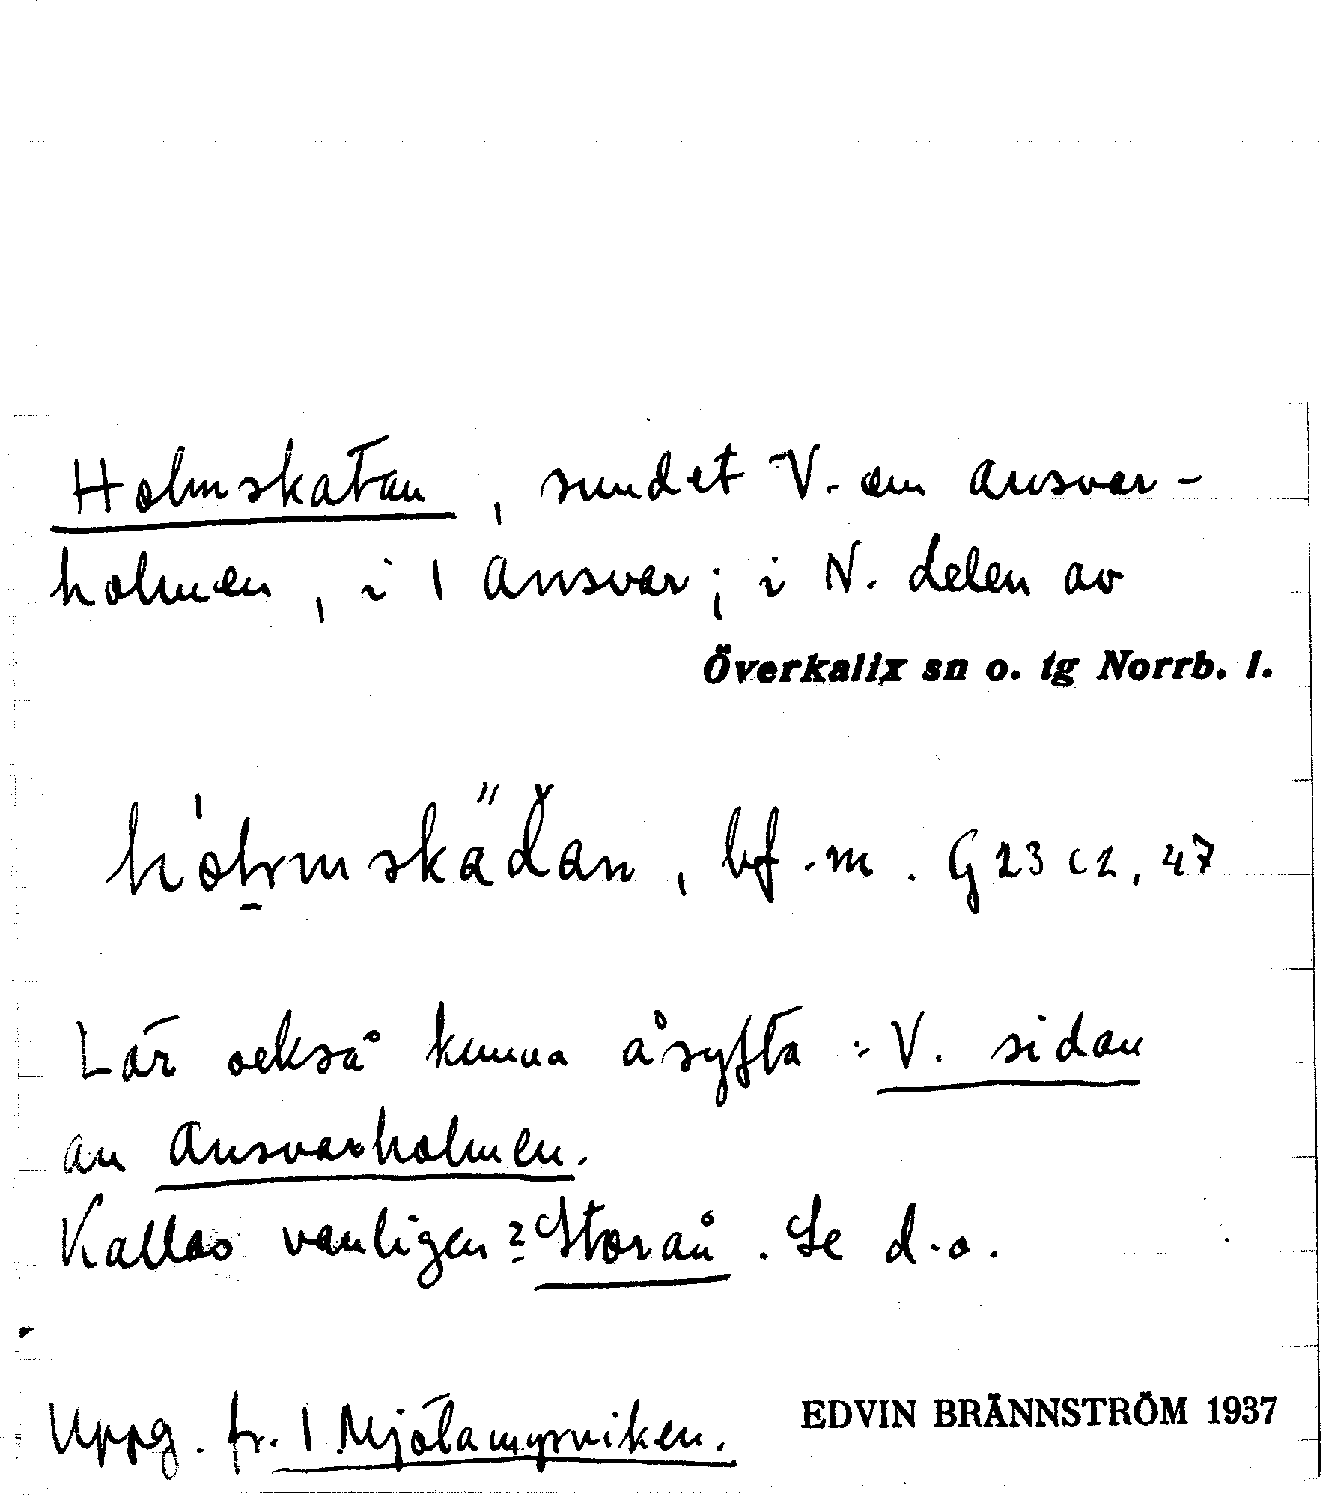 Holmskatan, sundet V. om Ansvar-
holmen, i 1 Ansvar; i N. delen av
Överkalix sn o. tg Norrb. l.
bf. m. G 23 c 2, 47
Lär också kunna åsyfta: V. sidan
av Ansvarholmen.
Kallas vanligen 2 Storån. Se d.o.
Uppg. fr. 1 Mjölamyrviken.
EDVIN BRÄNNSTRÖM 1937